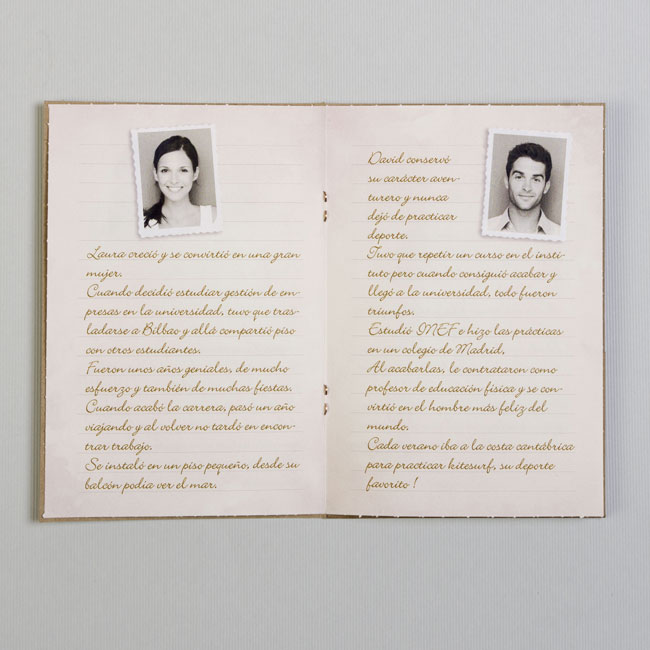 Laura creció y se convirtió en una gran
mujer.
Cuando decidió estudiar gestión de em-
presas en la universidad, tuvo que tras-
ladarse a Bilbao y allá compartió piso
con otros estudiantes.
Fueron unos años geniales, de mucho
esfuerzo y también de muchas fiestas.
Cuando acabó la carrera, pasó un año
viajando y al volver no tardó en encon-
trar trabajo.
Se instaló en un piso pequeño, desde su
balcón podia ver el mar.
David conservó
su carácter aven-
turero y nunca
dejó de practicar
deporte.
Tuvo que repetir un curso en el insti-
tuto pero cuando consiguió acabar y
llegó a la universidad, todo fueron
triunfos.
Estudió INEF e hizo las prácticas
en un colegio de Madrid,
Al acabarlas, le contrataron como
profesor de educación física y se con-
virtió en el hombre más feliz del
mundo.
Cada verano iba a la costa cantábrica
para practicar kitesurf, su deporte
favorito !